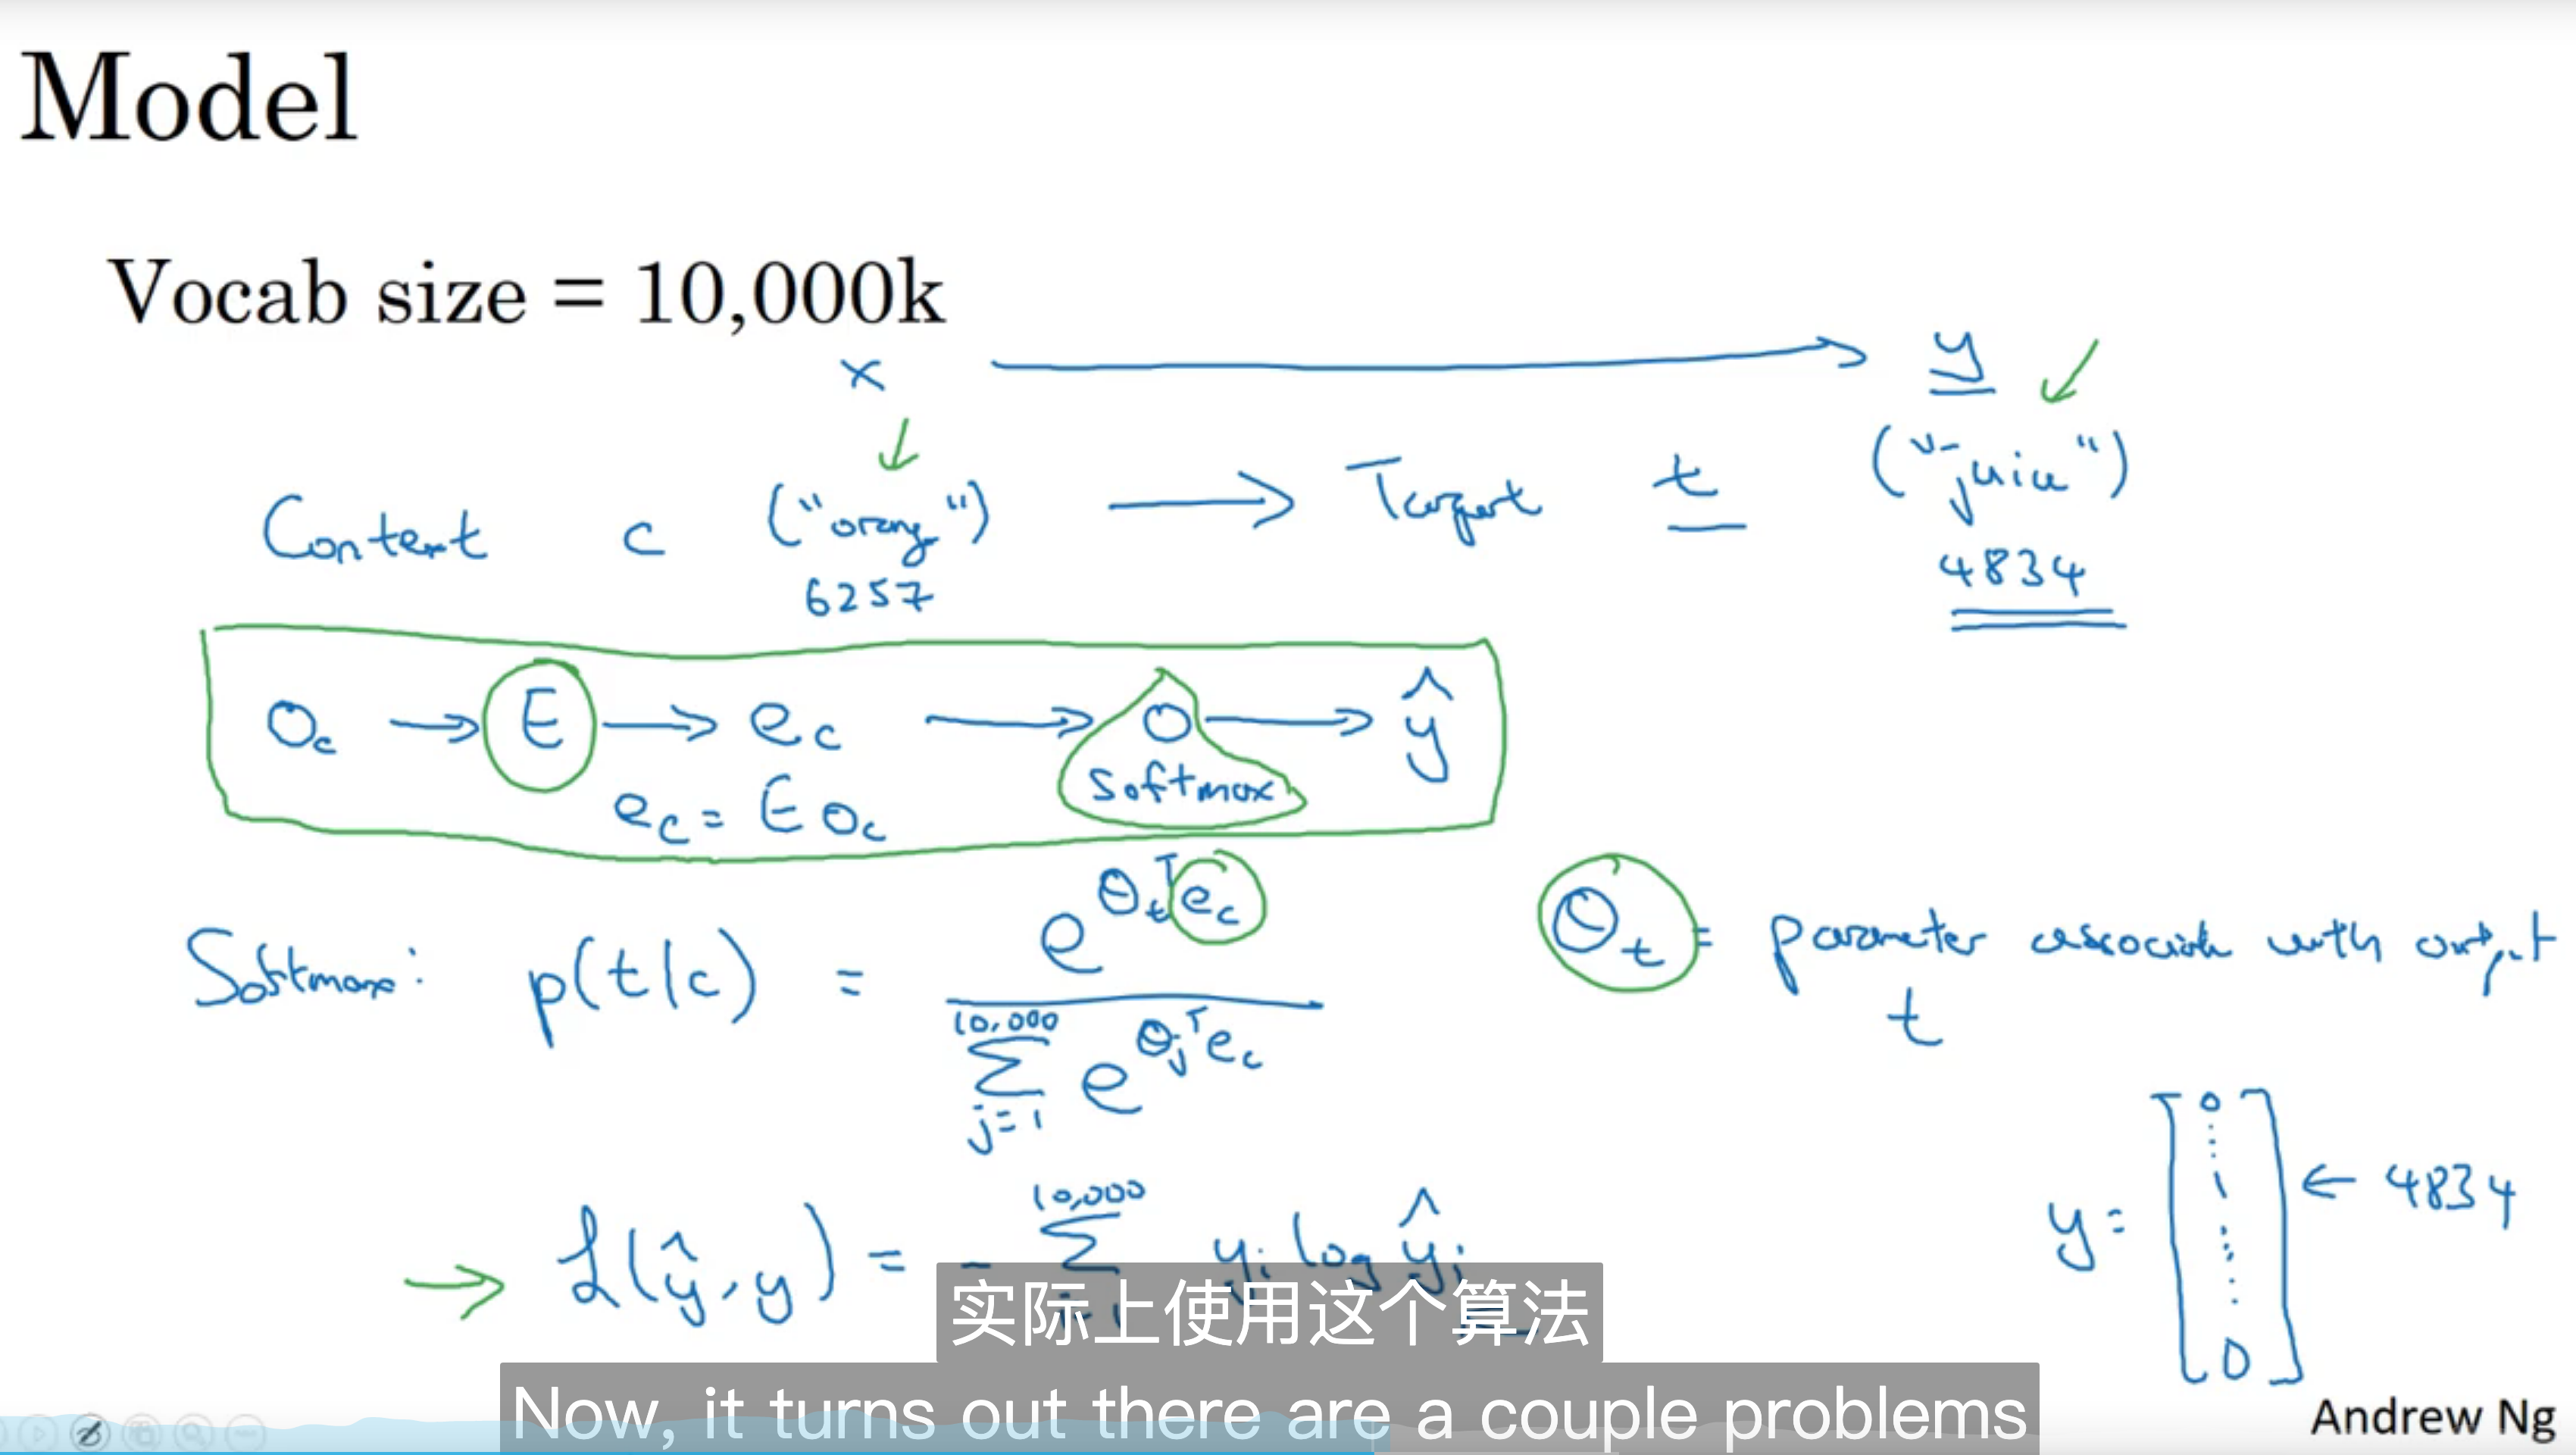 Model
Vocab size = 10,000k
x → y
Context c ("orange") → Target t ("juice")
6257 4834
O_c → E → e_c → O → ŷ
softmax
e_c = E O_c
Softmax: p(t|c) = e^{θ_t^T e_c} / Σ_{j=1}^{10,000} e^{θ_j^T e_c}
θ_t = parameter associate with output t
ℒ(ŷ, y) = - Σ_{i=1}^{10,000} y_i log ŷ_i
y = [0 ⋮ 1 ⋮ 0] ← 4834
实际上使用这个算法
Now, it turns out there are a couple problems
Andrew Ng